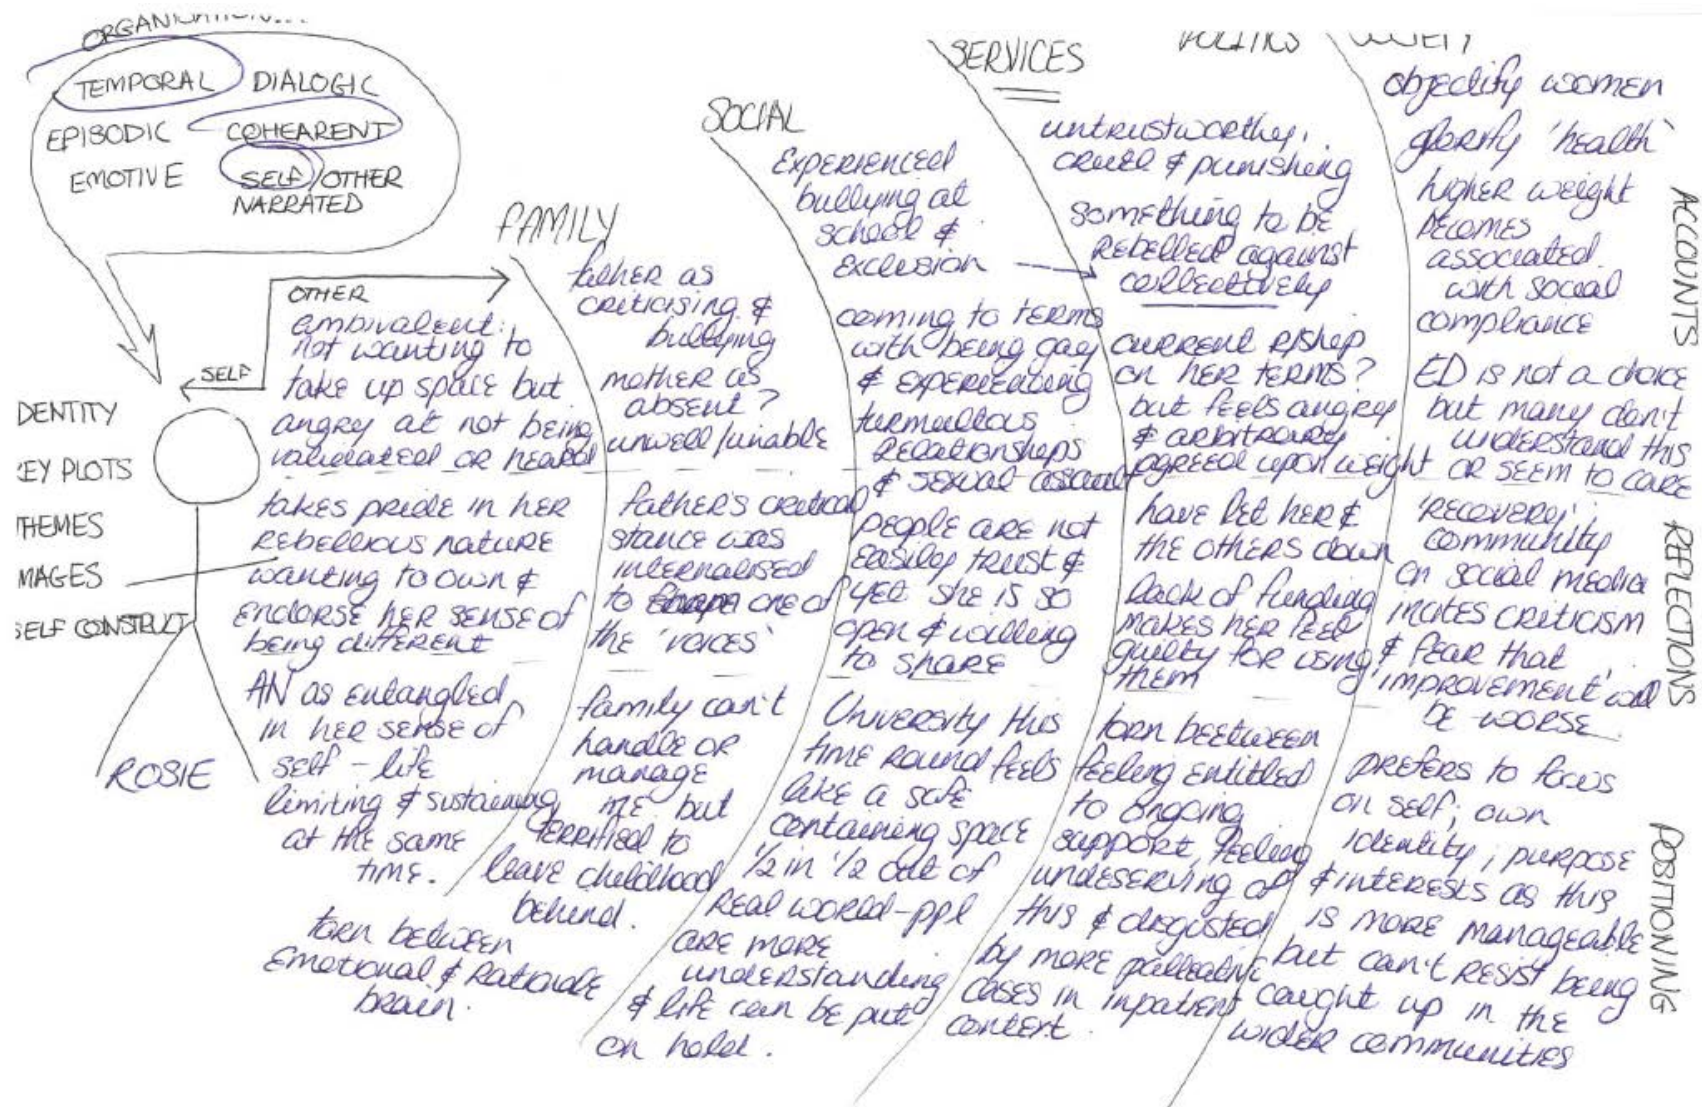 ORGANISATION...
TEMPORAL DIALOGIC
EPISODIC COHEARENT
EMOTIVE SELF/OTHER
NARRATED
OTHER
SELF
IDENTITY
KEY PLOTS
THEMES
IMAGES
SELF CONSTRUCT
ROSIE
ambivalent:
not wanting to
take up space but
angry at not being
validated OR heard
takes pride in her
REBELLIOUS nature
wanting to own &
ENDORSE HER SENSE of
being different
AN as entangled
in HER SENSE of
self - life
limiting & sustaining
at the same
time.
torn between
Emotional & Rationale
brain.
FAMILY
father as
criticising &
bullying
mother as
absent?
unwell/unable
father's critical
stance was
internalised
to one of
the 'voices'
family can't
handle OR
manage
ME but
TERRIFIED to
leave childhood
behind.
SOCIAL
EXPERIENCED
bullying at
school &
Exclusion
coming to terms
with being gay
& EXPERIENCING
Relationships
& sexual assault
people are not
easily trust &
yet she is so
open & willing
to share
University this
time Round feels
like a safe
containing space
1/2 in 1/2 out of
Real world-ppl
are more
understanding
& life can be put
on hold.
SERVICES
untrustworthy,
cruel & punishing
something to be
REBELLED against
collectively
current R/ship
on her terms?
but feels angry
& arbitrary
agreed upon weight
have let her &
the others down
lack of funding
makes her feel
guilty for using
them
torn beetween
feeling entitled
to ongoing
support, feeling
undeserving of
this & disgusted
by more palleative
cases in inpatient
context.
POLITICS
SOCIETY
objectify women
glorify 'health'
higher weight
becomes
associated
with social
compliance
ED is not a choice
but many don't
understand this
OR SEEM to CARE
'RECOVERY'
community
on social media
incites CRITICISM
& fear that
'improvement' will
be worse.
prefers to focus
on self; own
identity; purpose
& interests as this
is more manageable
but can't resist being
caught up in the
wider communities
ACCOUNTS
REFLECTIONS
POSITIONING